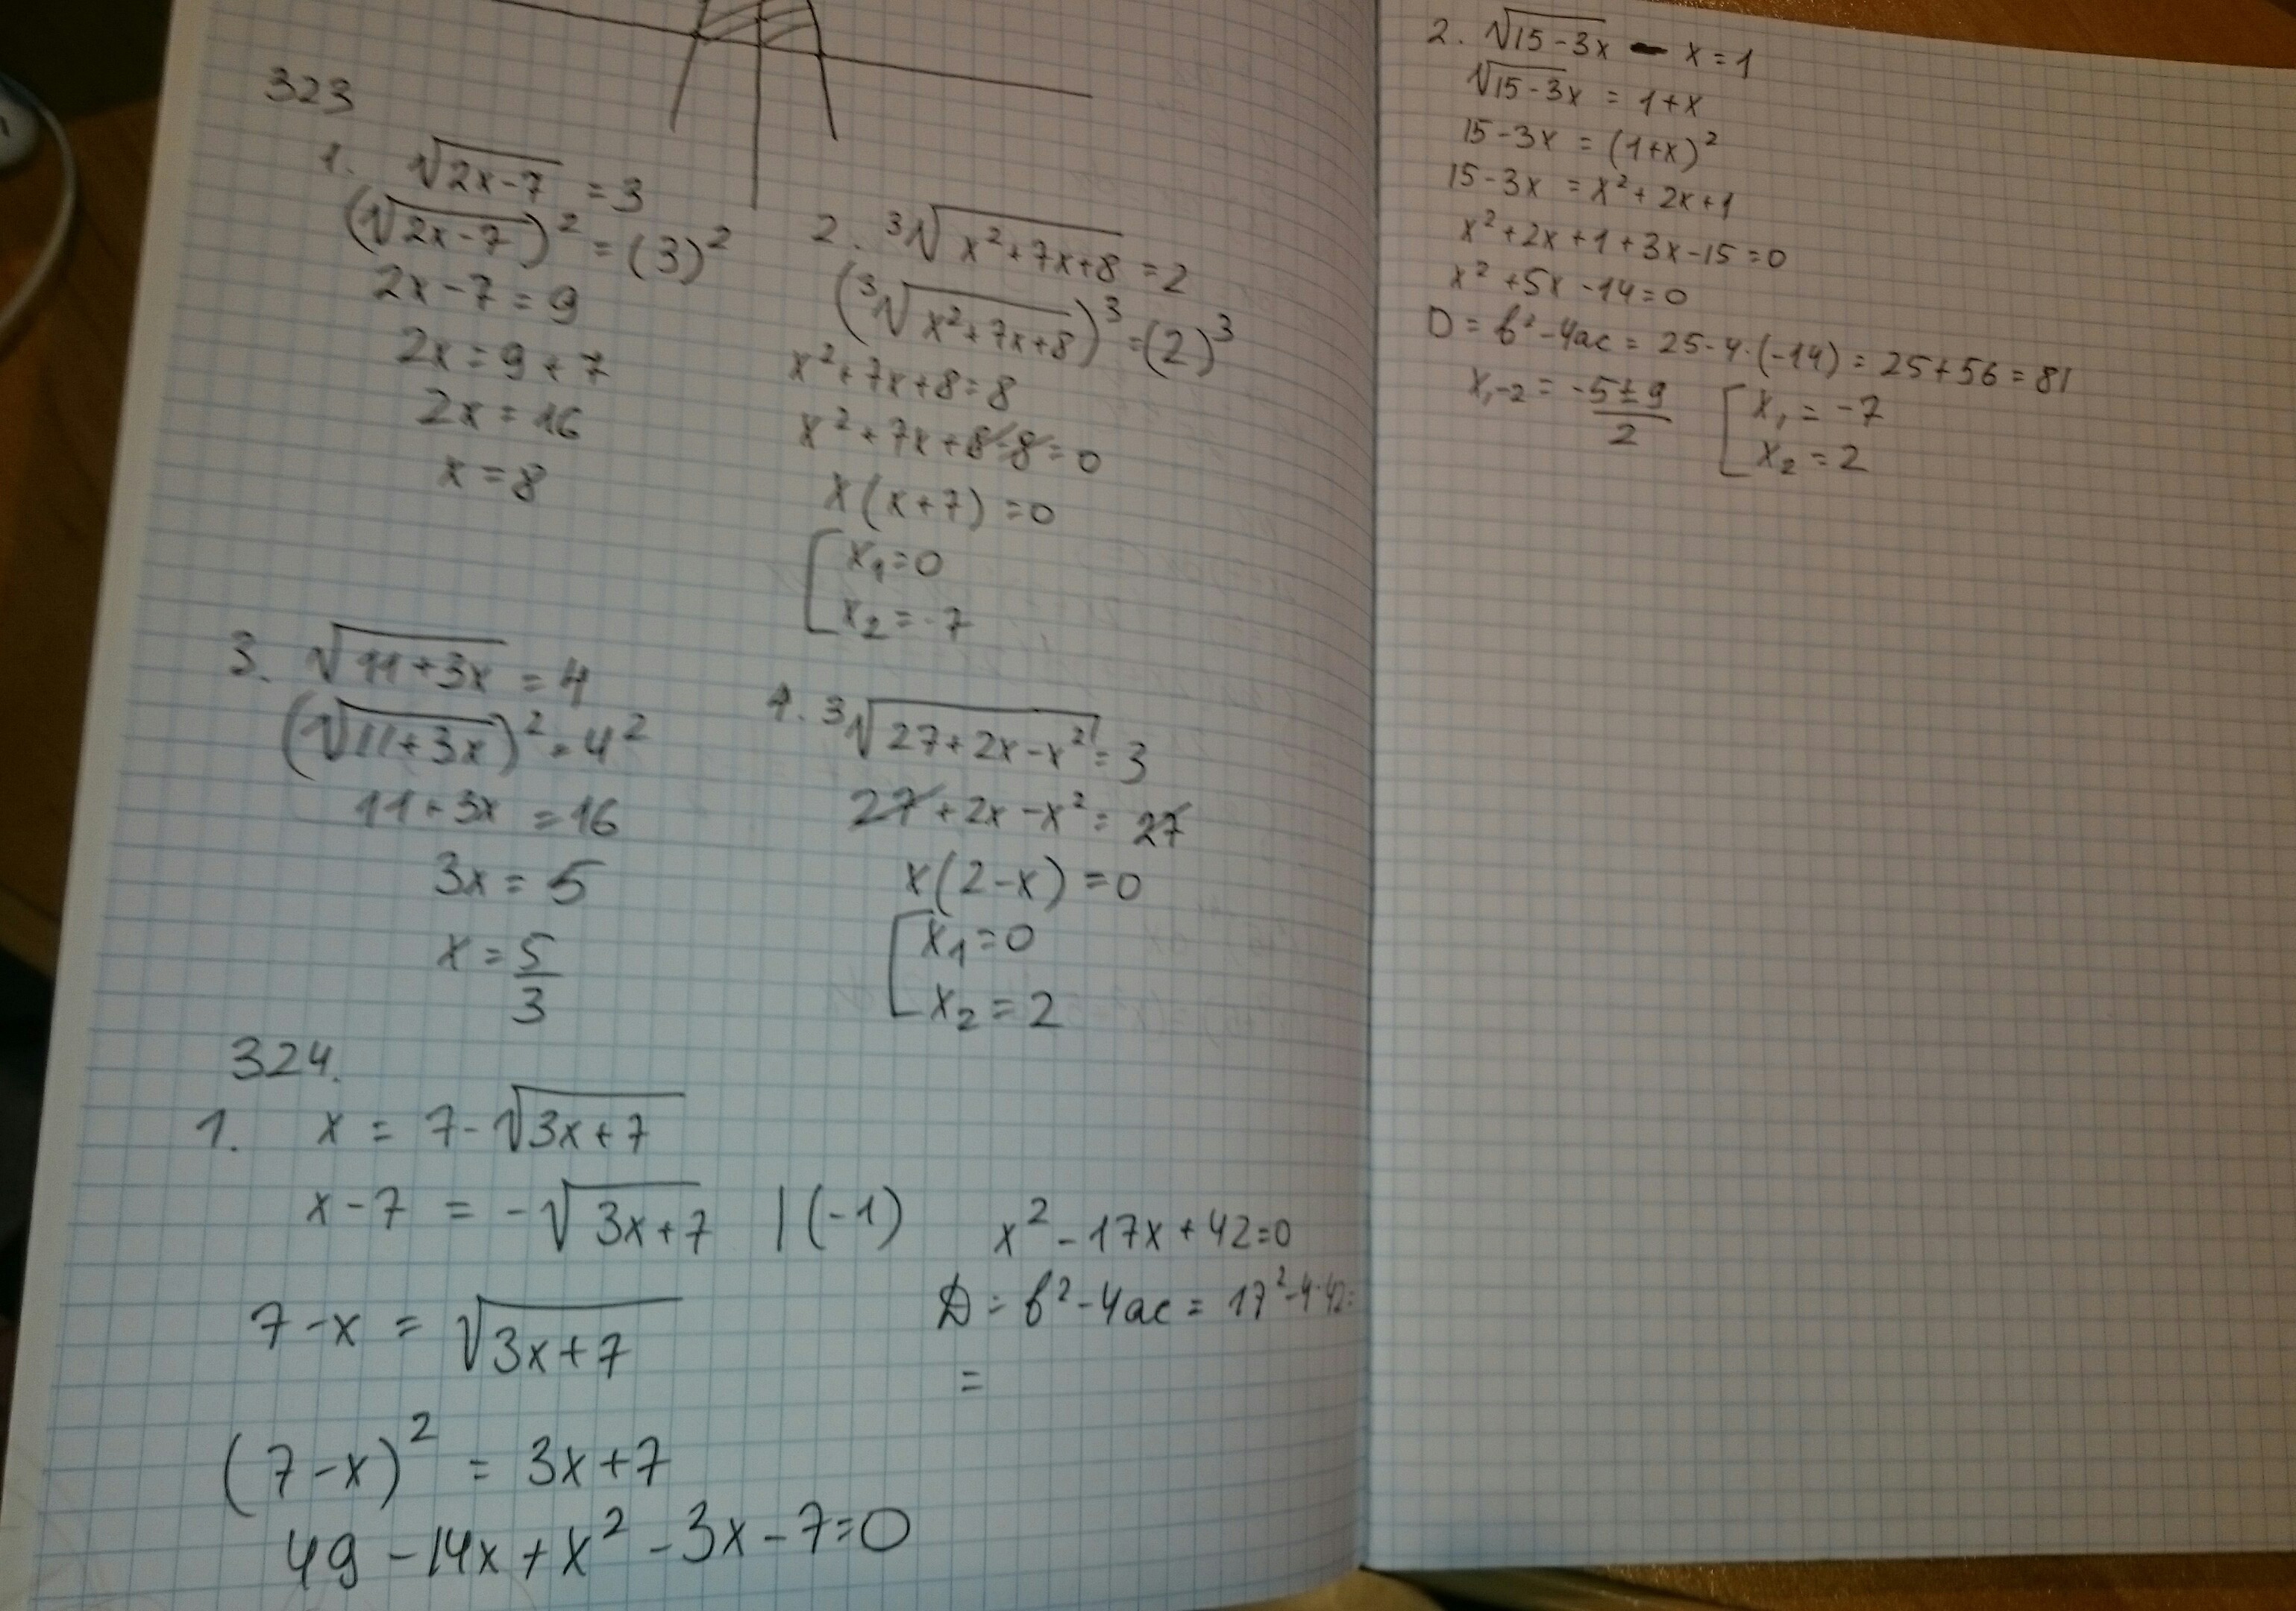 323
1. √(2x-7) = 3
(√(2x-7))² = (3)²
2x-7=9
2x=9+7
2x=16
x=8
2. ³√(x²+7x+8) = 2
(³√(x²+7x+8))³ = (2)³
x²+7x+8=8
x²+7x+8-8=0
x(x+7)=0
[x₁=0
x₂=-7
3. √(11+3x) = 4
(√(11+3x))² = 4²
11+3x=16
3x=5
x=5/3
4. ³√(27+2x-x²) = 3
27+2x-x²=27
x(2-x)=0
[x₁=0
x₂=2
324.
1. x = 7-√(3x+7)
x-7 = -√(3x+7) |(-1)
7-x = √(3x+7)
(7-x)² = 3x+7
49-14x+x²-3x-7=0
x²-17x+42=0
D=b²-4ac=17²-4·42=
=
2. √(15-3x) - x=1
√(15-3x) = 1+x
15-3x = (1+x)²
15-3x = x²+2x+1
x²+2x+1+3x-15=0
x²+5x-14=0
D=b²-4ac=25-4·(-14)=25+56=81
x₁-₂ = (-5±9)/2 [x₁=-7
x₂=2